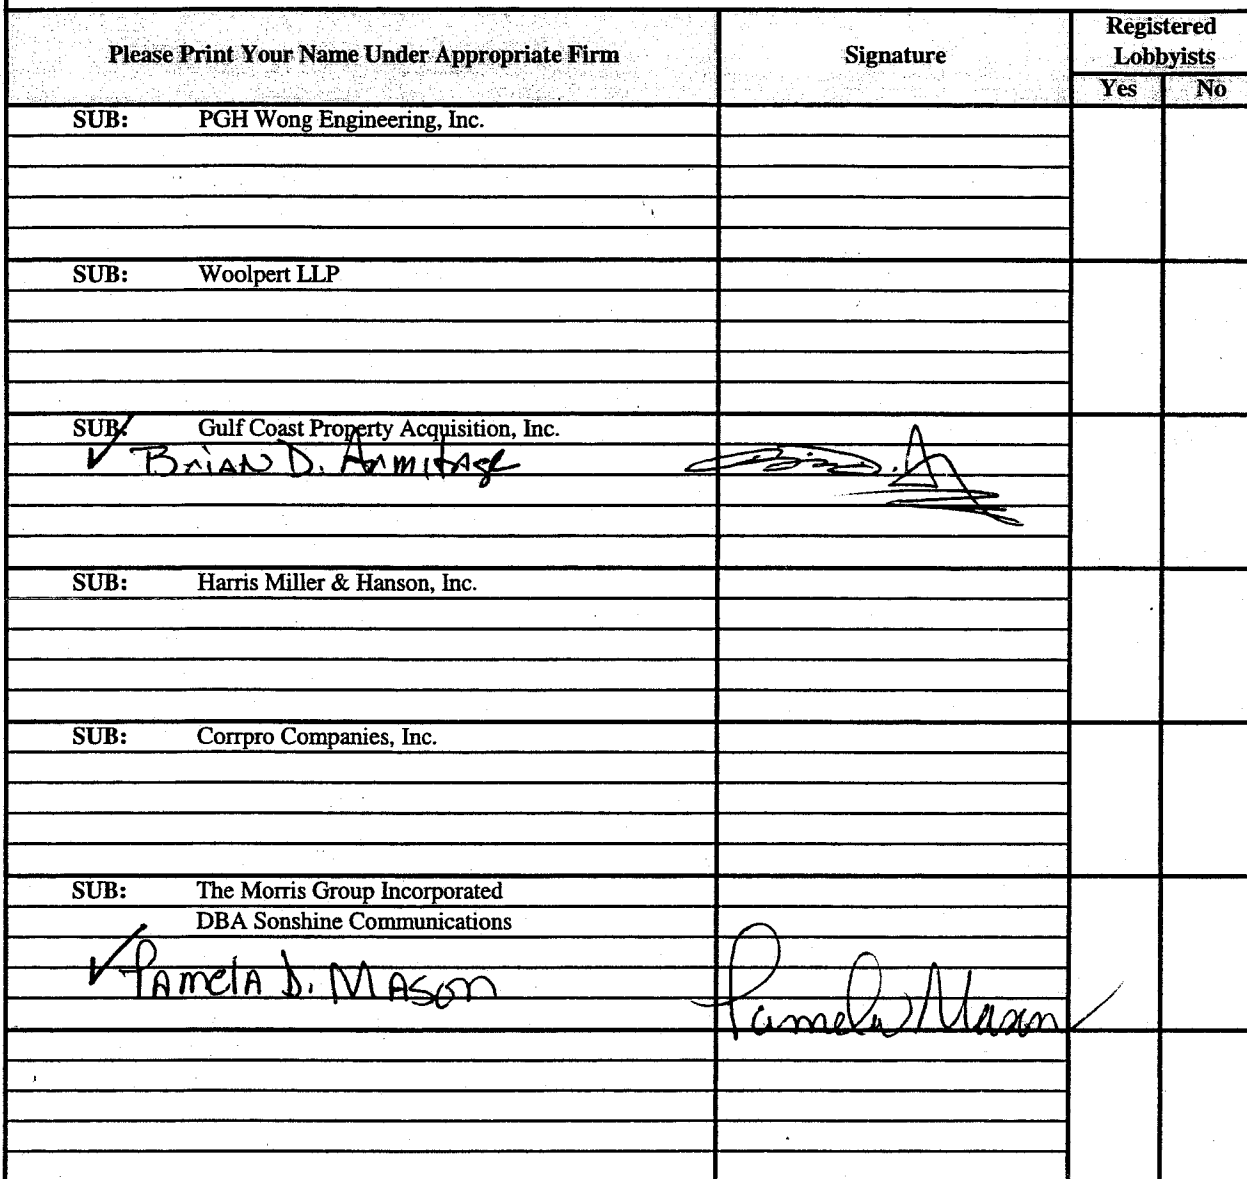 Please Print Your Name Under Appropriate Firm Signature Registered Lobbyists
Yes No
SUB: PGH Wong Engineering, Inc.
SUB: Woolpert LLP
SUB: Gulf Coast Property Acquisition, Inc.
✓ Brian D. Armitage
SUB: Harris Miller & Hanson, Inc.
SUB: Corrpro Companies, Inc.
SUB: The Morris Group Incorporated
DBA Sonshine Communications
✓ Pamela D. Mason Pamela Mason